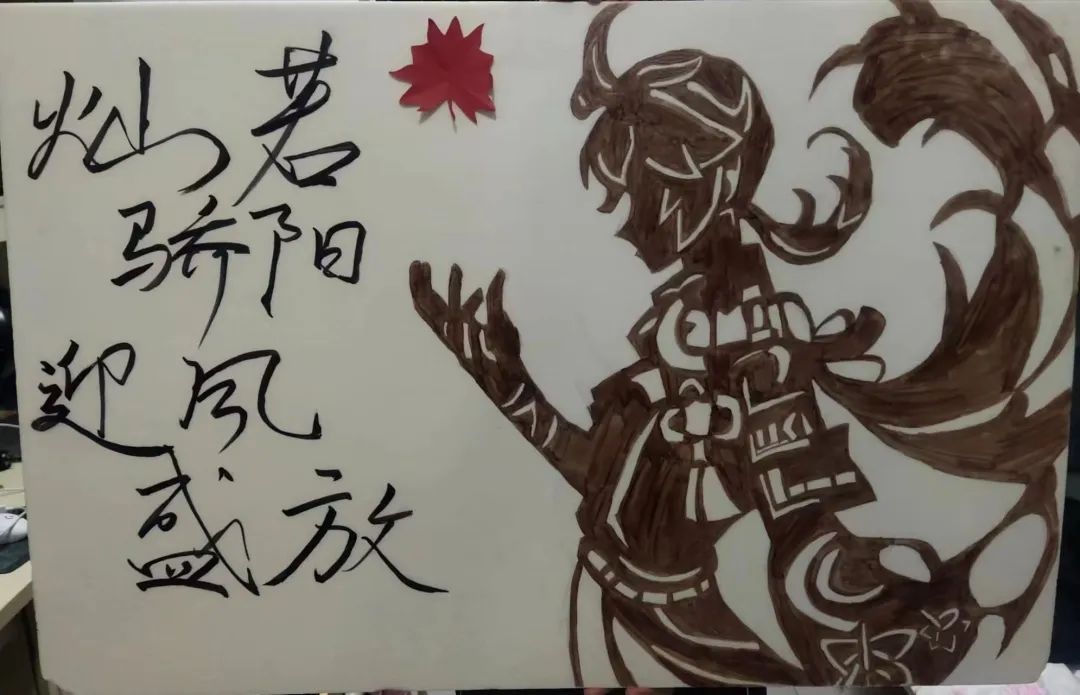 灿若
骄阳
迎风
盛放